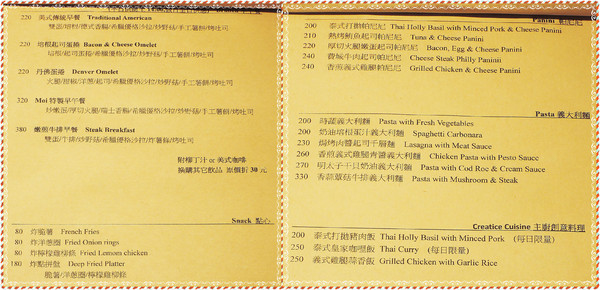 220 美式傳統早餐 Traditional American
雙蛋/培根/德式香腸/希臘優格沙拉/炒野菇/手工薯餅/烤吐司
220 培根起司蛋捲 Bacon & Cheese Omelet
培根/起司蛋捲/希臘優格沙拉/炒野菇/手工薯餅/烤吐司
220 丹佛蛋捲 Denver Omelet
火腿/甜椒/洋蔥/起司/希臘優格沙拉/炒野菇/手工薯餅/烤吐司
320 Moi 特製早午餐
炒嫩蛋/厚切火腿/瑞士香腸/希臘優格沙拉/炒野菇/手工薯餅/烤吐司
380 嫩煎牛排早餐 Steak Breakfast
雙蛋/牛排/炒野菇/希臘優格沙拉/炸薯條/烤吐司
附柳丁汁 or 美式咖啡
換購其它飲品 原價折 30 元
Snack 點心
80 炸脆薯 French Fries
80 炸洋蔥圈 Fried Onion rings
80 炸檸檬雞柳條 Fried Lomon chicken
180 炸點拼盤 Deep Fried Platter
脆薯/洋蔥圈/檸檬雞柳條
Panini 帕尼尼
200 泰式打拋帕尼尼 Thai Holly Basil with Minced Pork & Cheese Panini
210 熱烤鮪魚起司帕尼尼 Tuna & Cheese Panini
220 厚切火腿嫩蛋起司帕尼尼 Bacon, Egg & Cheese Panini
240 費城牛肉起司帕尼尼 Cheese Steak Philly Paninii
240 香煎義式雞腿帕尼尼 Grilled Chicken & Cheese Panini
Pasta 義大利麵
200 時蔬義大利麵 Pasta with Fresh Vegetables
200 奶油培根蛋汁義大利麵 Spaghetti Carbonara
230 焗烤肉醬起司千層麵 Lasagna with Meat Sauce
260 香煎義式雞腿青醬義大利麵 Chicken Pasta with Pesto Sauce
270 明太子干貝奶油義大利麵 Pasta with Cod Roe & Cream Sauce
330 香蒜蕈菇牛排義大利麵 Pasta with Mushroom & Steak
Creatice Cuisine 主廚創意料理
200 泰式打拋豬肉飯 Thai Holly Basil with Minced Pork (每日限量)
250 泰式皇家咖哩飯 Thai Curry (每日限量)
250 義式雞腿蒜香飯 Grilled Chicken with Garlic Rice